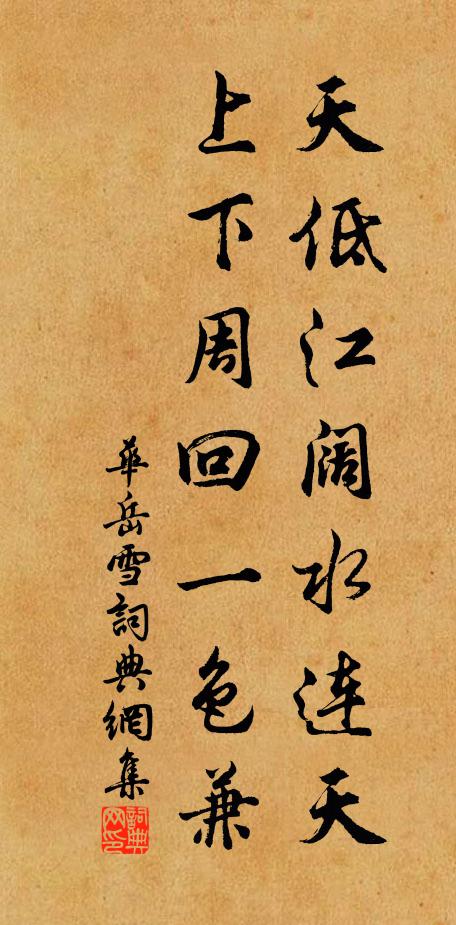 天低江阔水连天
上下周回一色兼
華岳雪詞典網集
詞典网印